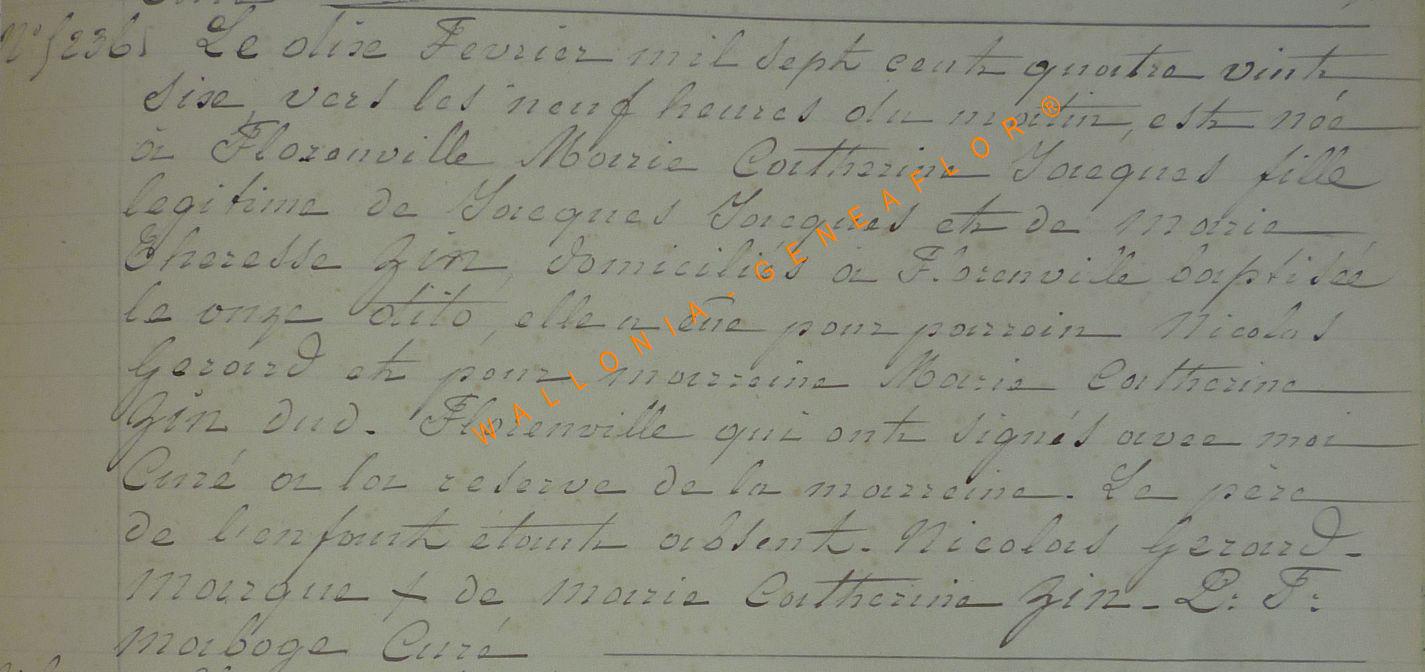 N° 5236. Le dix Fevrier mil sept cent quatre vint
six, vers les neuf heures du matin, est née
à Florenville Marie Catherine Jacques fille
legitime de Jacques Jacques et de Marie
Theresse Zin, domiciliés à Florenville baptisée
le onze dito, elle a eûe pour parrein Nicolas
Gerard et pour marreine Marie Catherine
Zin dud. Florenville qui ont signés avec moi
Curé a la reserve de la marreine. Le père
de l'enfant étant absent. Nicolas Gerard.
Marque + de Marie Catherine Zin. P. F.
Maboge Curé
WALLONIA - GENEAFLOR®